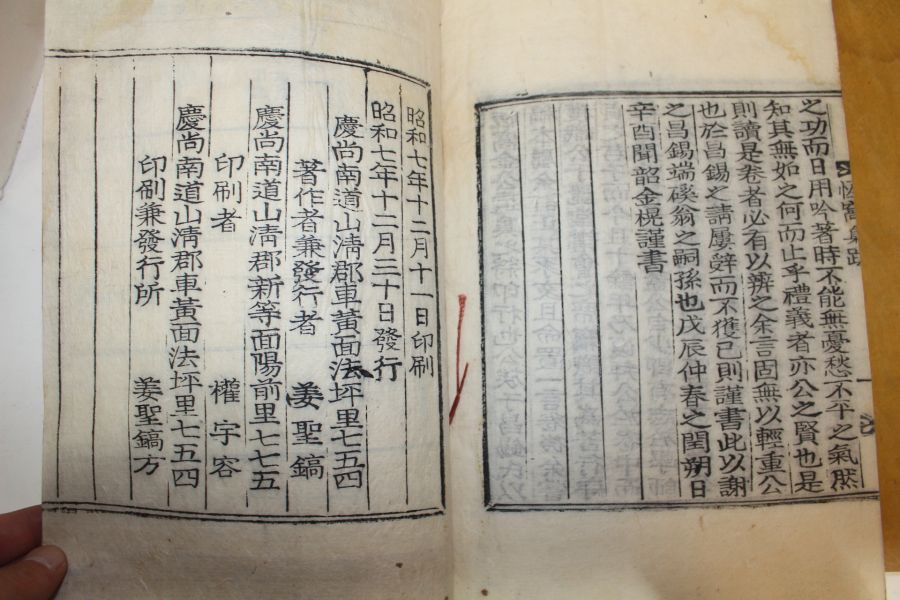 之功而日用吟著時不能無憂愁不平之氣然
知其無如之何而止乎禮義者亦公之賢也是
則讀是卷者必有以辨之余言固無以輕重公
也於昌錫之請屢辭而不獲已則謹書此以謝
之昌錫端磎翁之嗣孫也戊辰仲春之閏朔日
辛酉聞韶金榥謹書
昭和七年十二月十一日印刷
昭和七年十二月二十日發行
慶尚南道山淸郡車黃面法坪里七五四
著作者兼發行者 姜聖鎬
慶尚南道山淸郡新等面陽前里七七五
印刷者 權寧容
慶尚南道山淸郡車黃面法坪里七五四
印刷兼發行所 姜聖鎬方